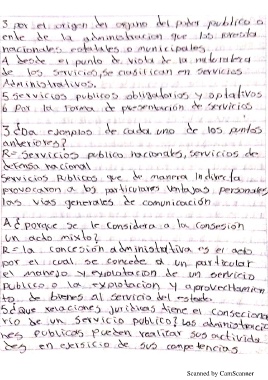 3 por el origen del organo del poder publico o
ente de la administracion que los presta
nacionales estatales o municipales.
4 desde el punto de vista de la naturaleza
de los servicios, se clasifican en servicios
Administrativos.
5 servicios publicos obligatorios y optativos
6 Por la forma de presentación de servicios
3 ¿Da ejemplos de cada uno de los puntos
anteriores?
R= servicios publico nacionales, servicios de
defensa nacional
Servicios Publicos que de manera indirecta
provocaron a los particulares ventajas personales
las vias generales de comunicación
4 ¿porque se le considera a la consesión
un acto mixto?
R= la concesión administrativa es el acto
por el cual se concede a un particular
el manejo y explotación de un servicio
Publico o la explotación y aprovechamien
to de bienes al servicio del estado.
5¿que relaciones juridicas tiene el conseciona
rio de un servicio publico? las administracio
nes publicas pueden realizar sus activida
des en ejercicio de sus competencias
Scanned by CamScanner